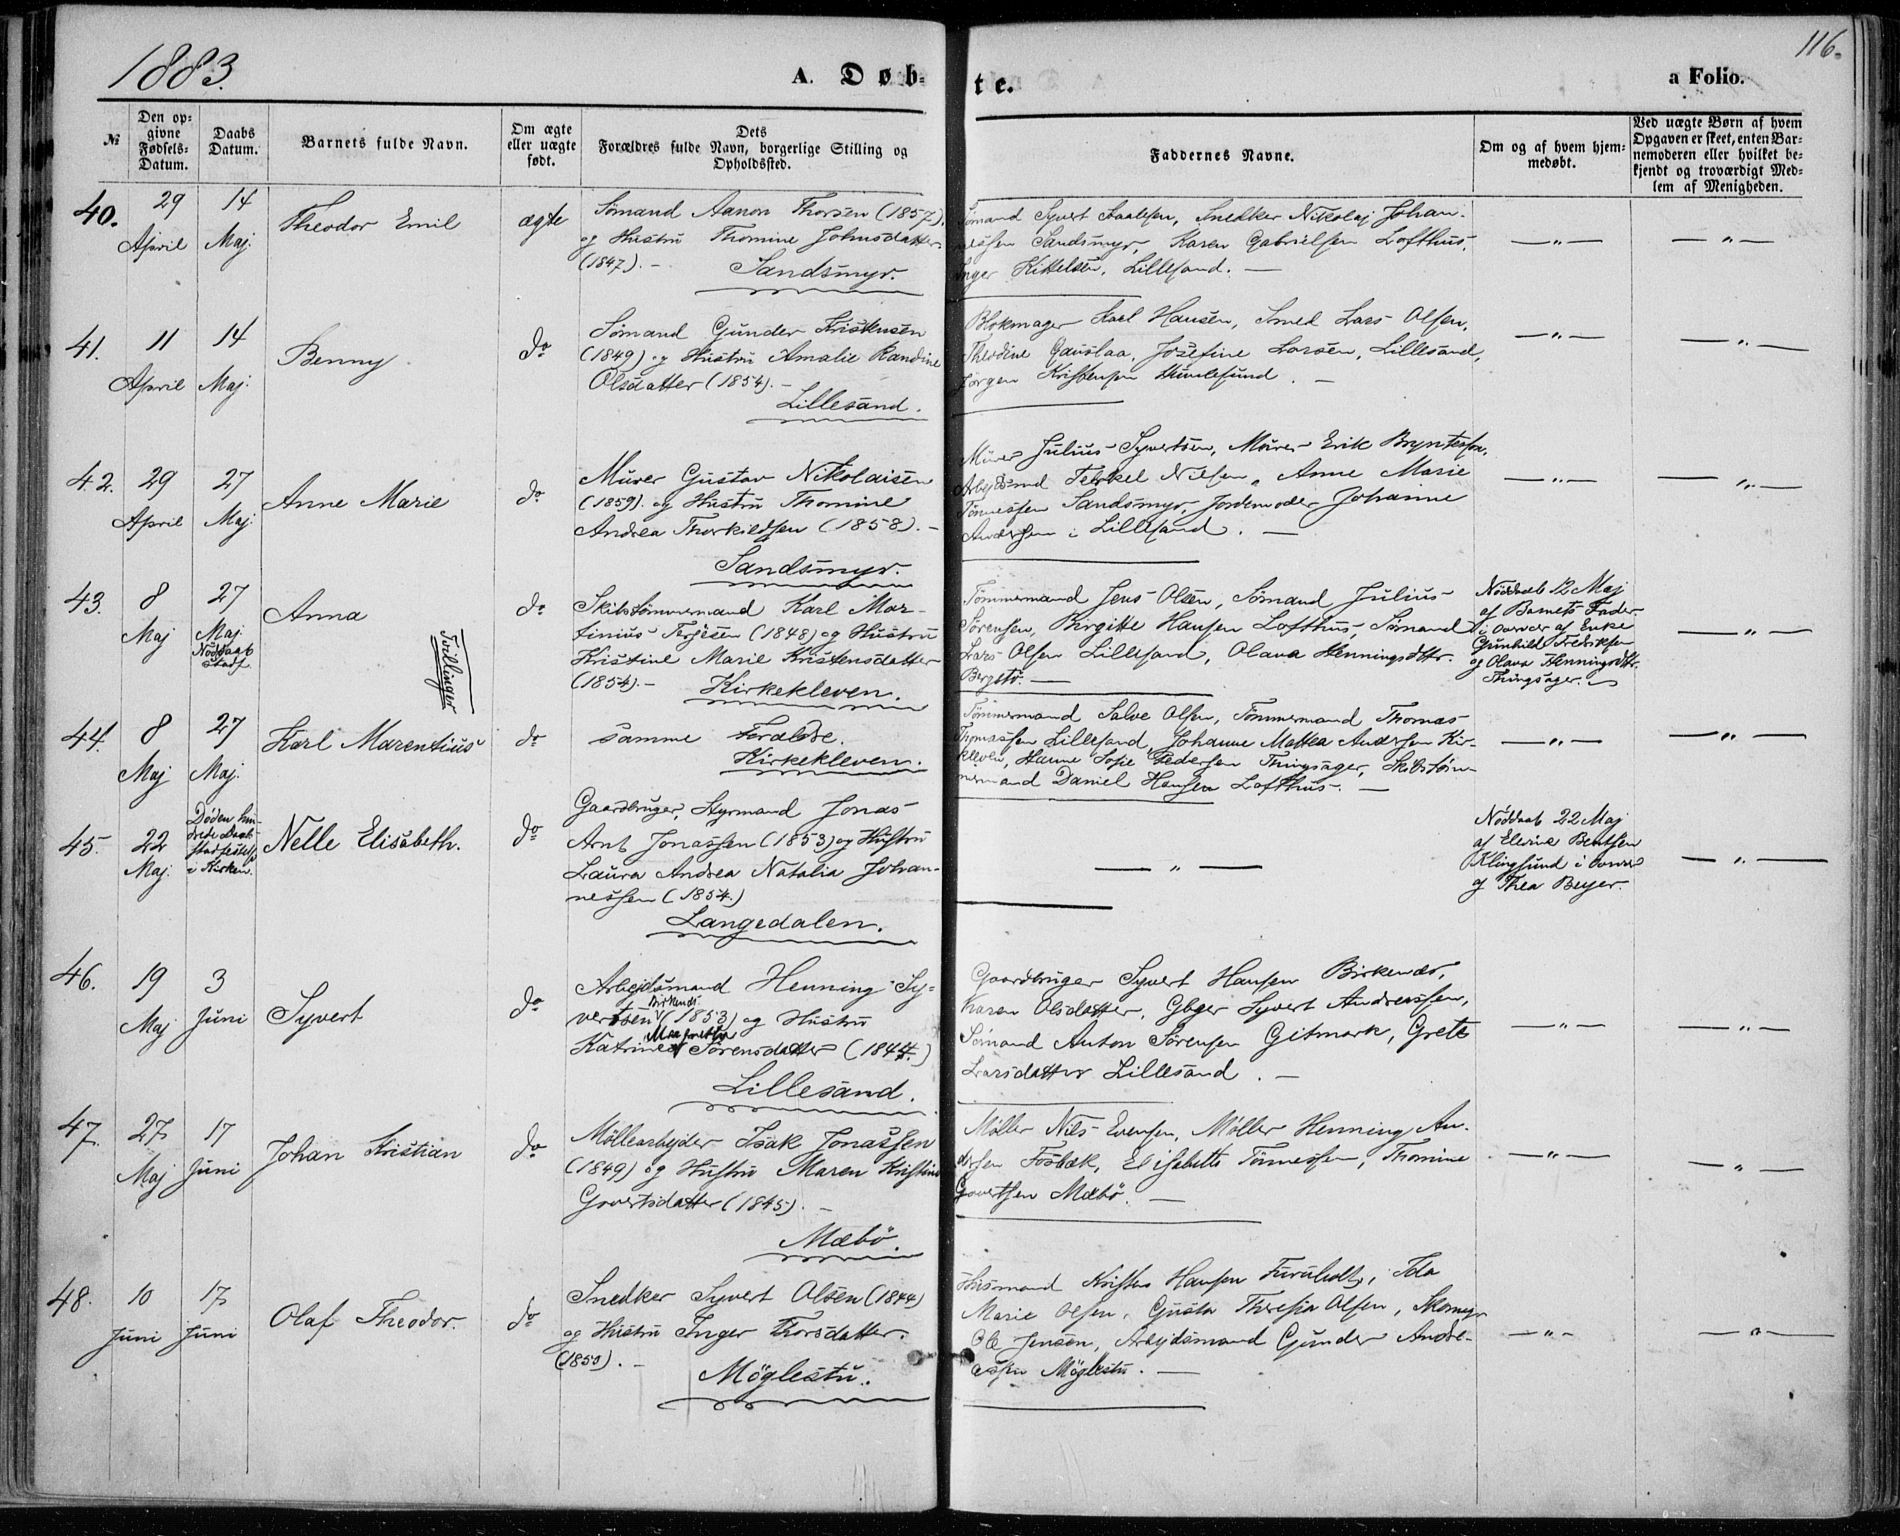 1883.
A. Døb-
te.
a Folio.
116.
№
Den op-
givne
Fødsels-
Datum.
Daabs
Datum.
Barnets fulde Navn.
Om ægte
eller uægte
født.
Dets
Forældres fulde Navn, borgerlige Stilling og
Opholdssted.
Faddernes Navne.
Om og af hvem hjem-
medøbt.
Ved uægte Børn af hvem
Opgaven er skeet, enten Bar-
nemoderen eller hvilket be-
kjendt og troværdigt Med-
lem af Menigheden.
40.
29
April
14
Maj.
Theodor Emil
ægte
Sømand Aanon Thorsen (1857)
og Hustru Thomine Johnsdatter
(1847). —
Sandsmyr.
Sømand Syvert Aaalesen, Snedker Nikolaj Johan-
nessen Sandsmyr, Karen Gabrielsen Lofthus,
Inger Kittelsen, Lillesand. —
— „ —
— „ —
41.
11
April
14
Maj.
Benny
do
Sømand Gunder Kristensen
(1849) og Hustru Amalie Randine
Olsdatter (1854). —
Lillesand.
Blokmager Karl Hansen, Smed Lars Olsen,
Theodine Gauslaa, Josefine Larsen, Lillesand,
Jørgen Kristensen Humlesund. —
— „ —
— „ —
42.
29
April
27
Maj.
Anne Marie
do
Murer Gustav Nikolaisen
(1859). og Hustru Thomine
Andrea Thorkildsen (1858). —
Sandsmyr.
Murer Julius Syvertsen, Murer Erik Bryntesen,
Arbejdsmd Terkel Nilsen, Anne Marie
Tønnessen Sandsmyr, Jordemoder Johanne
Andersen i Lillesand. —
— „ —
— „ —
43.
8
Maj
27
Maj
Nöddaab
stadf.
Anna
Tvillinger
do
Skibstömmermand Karl Mar-
tinius Terjesen (1848) og Hustru
Kristine Marie Kristensdatter
(1854). —
Kirkekleven.
Tömmermand Jens Olsen, Sömand Julius
Sörensen, Birgitte Hansen Lofthus, Sömand
Lars Olsen Lillesand, Olava Henningsdttr.
Bergstø. —
Nöddaab 12 Maj
af Barnets Fader
i Overvær af Enke
Gunhild Fredriksen
og Olava Henningsdttr.
Thingsager. —
— „ —
44.
8
Maj
27
Maj.
Karl Marentius
do
samme Forældre.
Kirkekleven.
Tömmermand Salve Olsen, Tömmermand Thomas
Thomassen Lillesand, Johanne Mattea Andersen Kir-
kleven, Hanne Sofie Pedersen Thingsager, Skibstöm-
mermand Daniel Hansen Lofthus. —
— „ —
— „ —
45.
22
Maj.
Døden hin-
drede Daab-
stadfæstelse
i Kirken.
Nelle Elisabeth.
do
Gaardbruger, Styrmand Jonas
Arnt Jonassen (1853) og Hustru
Laura Andrea Natalia Johan-
nessen (1854.)
Langedalen.
— „ —
Nöddaab 22 Maj
af Elevine Bentsen
Klingsund i Overvær
af Thea Beyer.
— „ —
46.
19
Maj
3
Juni
Syvert
do
Arbejdsmand Henning Sy-
Birkenes
vertsen (1853) og Hustru
Margrethe
Katrine Sörensdatter (1844.)
Lillesand.
Gaardbruger Syvert Hansen Birkenes,
Karen Olsdatter, Gbger Syvert Andreassen,
Sömand Anton Sörensen Gitmark, Grete
Larsdatter Lillesand. —
— „ —
— „ —
47.
27
Maj
17
Juni
Johan Kristian
do
Möllearbejder Isak Jonassen
(1849) og Hustru Maren Kristine
Govertsdatter (1845). —
Mæbö.
Møller Nils Evensen, Møller Henning An-
dersen Fosbæk, Elisabeth Tönnessen, Thomine
Govertsen Mæbö. —
— „ —
— „ —
48.
10
Juni
17
Juni
Olaf Theodor.
do
Snedker Syvert Olsen (1844)
og Hustru Inger Thorsdatter.
(1850). —
Möglestu.
Husmand Kristen Hansen Furuholt, Ida
Marie Olsen, Gusta Theresia Olsen, Skomager
Ole Jensen, Arbejdsmand Gunder Andre-
assen Möglestu. —
— „ —
— „ —